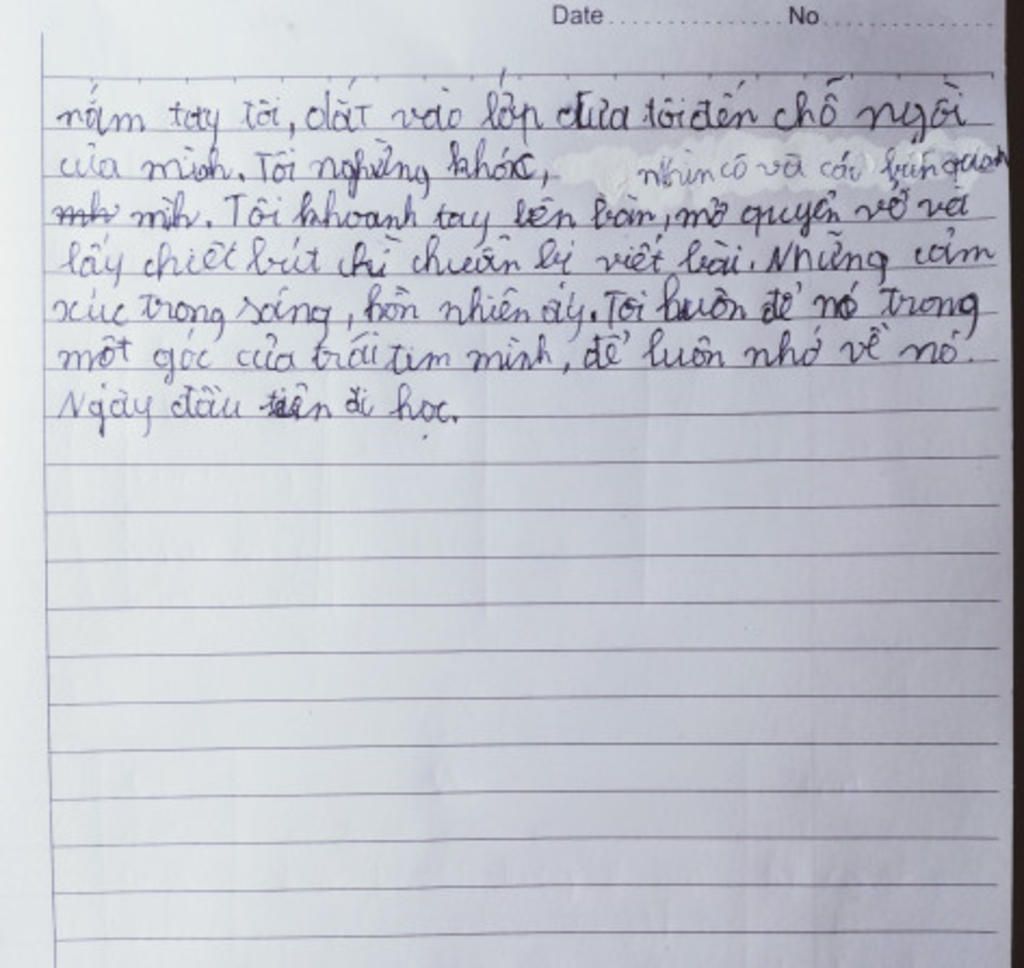 Date No
nắm tay tôi, dắt vào lớp đưa tôi đến chỗ ngồi
của mình. Tôi nghừng khóc, nhìn cô và các bạn quanh
mình. Tôi khoanh tay lên bàn, mở quyển vở và
lấy chiếc bút chì chuẩn bị viết bài. Những cảm
xúc trong sáng, hồn nhiên ấy. Tôi luôn để nó trong
một góc của trái tim mình, để luôn nhớ về nó.
Ngày đầu tiên đi học.